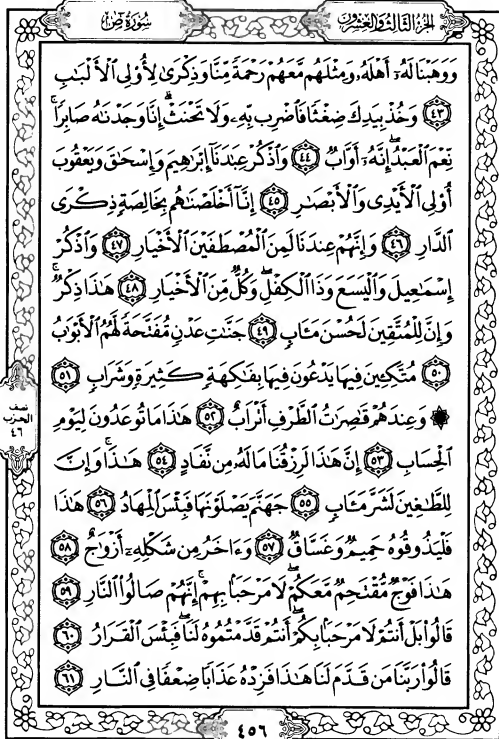 الجزء الثالث والعشرون
سورة ص
ووهبنا له أهله ومثلهم معهم رحمة منا وذكرى لأولي الألباب
﴿٤٣﴾ وخذ بيدك ضغثا فاضرب به ولا تحنث إنا وجدناه صابرا
نعم العبد إنه أواب ﴿٤٤﴾ واذكر عبادنا إبراهيم وإسحاق ويعقوب
أولي الأيدي والأبصار ﴿٤٥﴾ إنا أخلصناهم بخالصة ذكرى
الدار ﴿٤٦﴾ وإنهم عندنا لمن المصطفين الأخيار ﴿٤٧﴾ واذكر
إسماعيل واليسع وذا الكفل وكل من الأخيار ﴿٤٨﴾ هذا ذكر
وإن للمتقين لحسن مآب ﴿٤٩﴾ جنات عدن مفتحة لهم الأبواب
﴿٥٠﴾ متكئين فيها يدعون فيها بفاكهة كثيرة وشراب ﴿٥١﴾
۞ وعندهم قاصرات الطرف أتراب ﴿٥٢﴾ هذا ما توعدون ليوم
الحساب ﴿٥٣﴾ إن هذا لرزقنا ما له من نفاد ﴿٥٤﴾ هذا وإن
للطاغين لشر مآب ﴿٥٥﴾ جهنم يصلونها فبئس المهاد ﴿٥٦﴾ هذا
فليذوقوه حميم وغساق ﴿٥٧﴾ وآخر من شكله أزواج ﴿٥٨﴾
هذا فوج مقتحم معكم لا مرحبا بهم إنهم صالوا النار ﴿٥٩﴾
قالوا بل أنتم لا مرحبا بكم أنتم قدمتموه لنا فبئس القرار ﴿٦٠﴾
قالوا ربنا من قدم لنا هذا فزده عذابا ضعفا في النار ﴿٦١﴾
نصف
الحزب
٤٦
٤٥٦